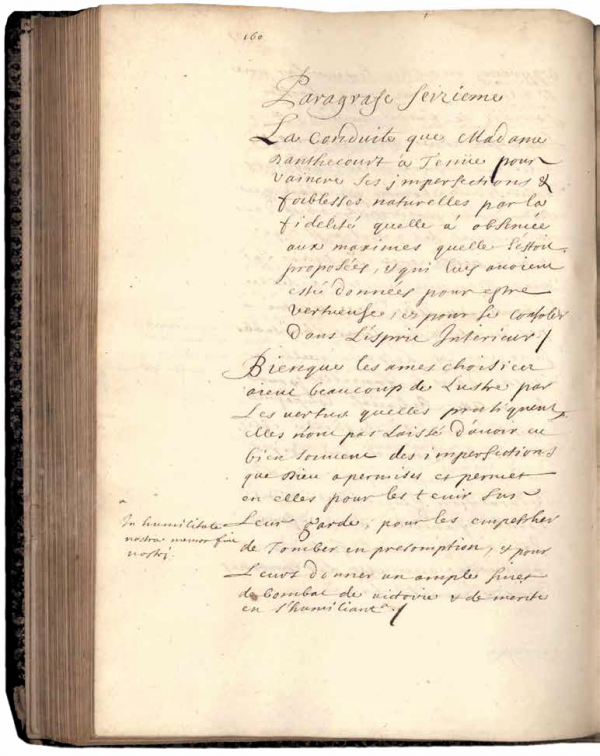 160
Paragrafe seizieme
La Conduite que Madame
Danthecourt à Tenüe pour
vaincre ses jmperfections &
foiblesses naturelles par la
fidelité quelle à obseruée
aux maximes quelle s'estoit
proposées, & qui luy auoient
esté données pour estre
vertueuse, et pour se Consoler
dans L'esprit Interieur /
Bienque les ames choisies
aient beaucoup de Lustre par
Les vertus quelles pratiquent,
elles n'ont pas Laissé d'auoir eu
bien souuent des imperfections
que Dieu a permises et permet
en elles pour les tenir sur
Leur garde, pour les empescher
de Tomber en presomption, & pour
Leurs donner un ample suiet
de Combat de victoire & de merite
en s'humiliant a /
a
In humilitate
nostra memor fuit
nostri.